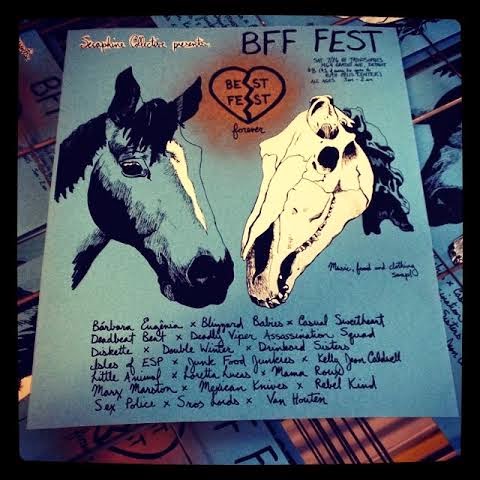 Seraphine Collective presents
BFF FEST
SAT 7/26
DETROIT
ALL AGES 3pm - 2am
BEST
FEST
forever
Music, food and clothing
swap!
Bárbara Eugênia x Blizzard Babies x Casual Sweetheart
Deadbeat Beat x Deadly Viper Assassination Squad
Diskette x Double Winter x Drinkard Sisters
Isles of ESP x Junk Food Junkies x Kelly Jean Caldwell
Little Animal x Loretta Lucas x Mama Roux
Marx Marston x Mexican Knives x Rebel Kind
Sex Police x Sros Lords x Van Houten